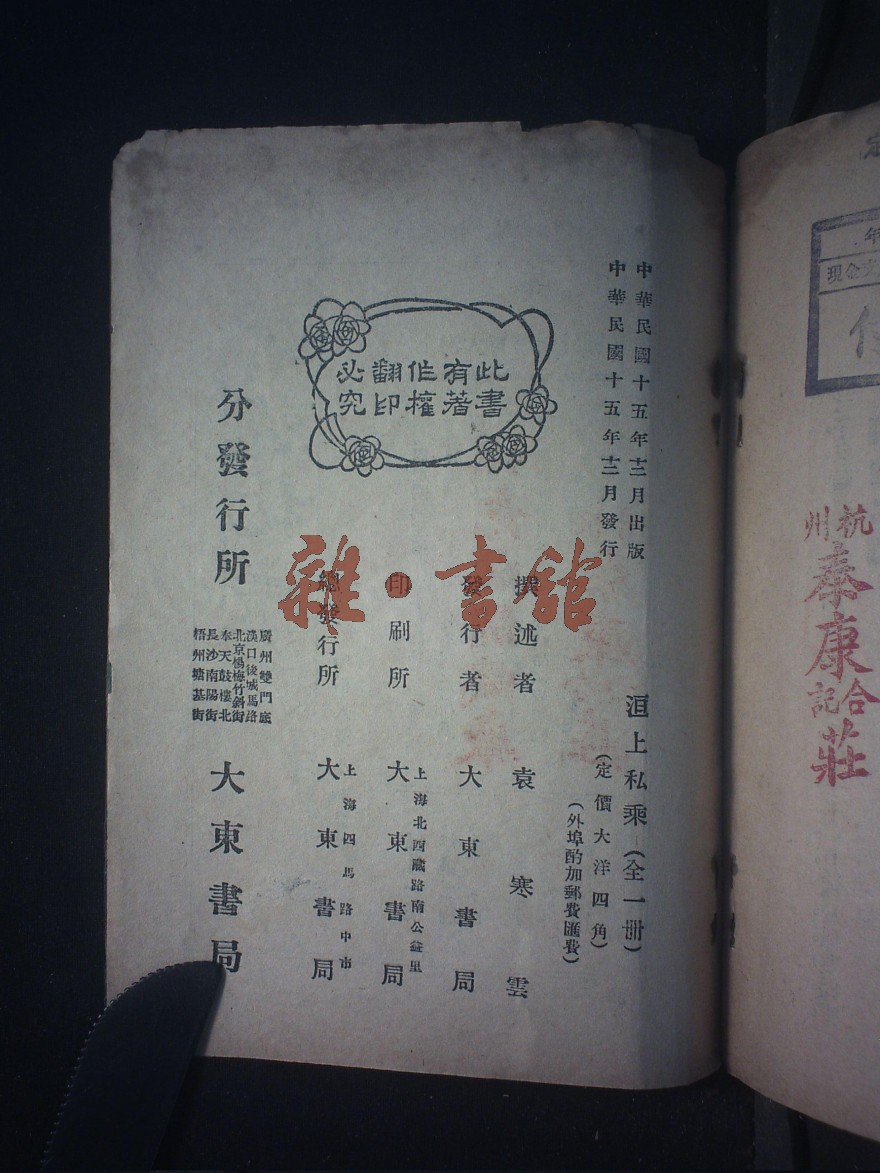 中華民國十五年十二月出版
中華民國十五年十二月發行
此書
有著
作權
翻印
必究
洹上私乘(全一冊)
(定價大洋四角)
(外埠酌加郵費匯費)
撰述者 袁寒雲
發行者 大東書局
印刷所 上海北四川路南公益里 大東書局
總發行所 上海四馬路中市 大東書局
分發行所
廣州雙門底
漢口後城馬路
北京楊梅竹斜街
奉天鼓樓北
長沙南陽街
梧州塘基街
大東書局
雜·書館
年
現金
杭州
泰康
合記
莊